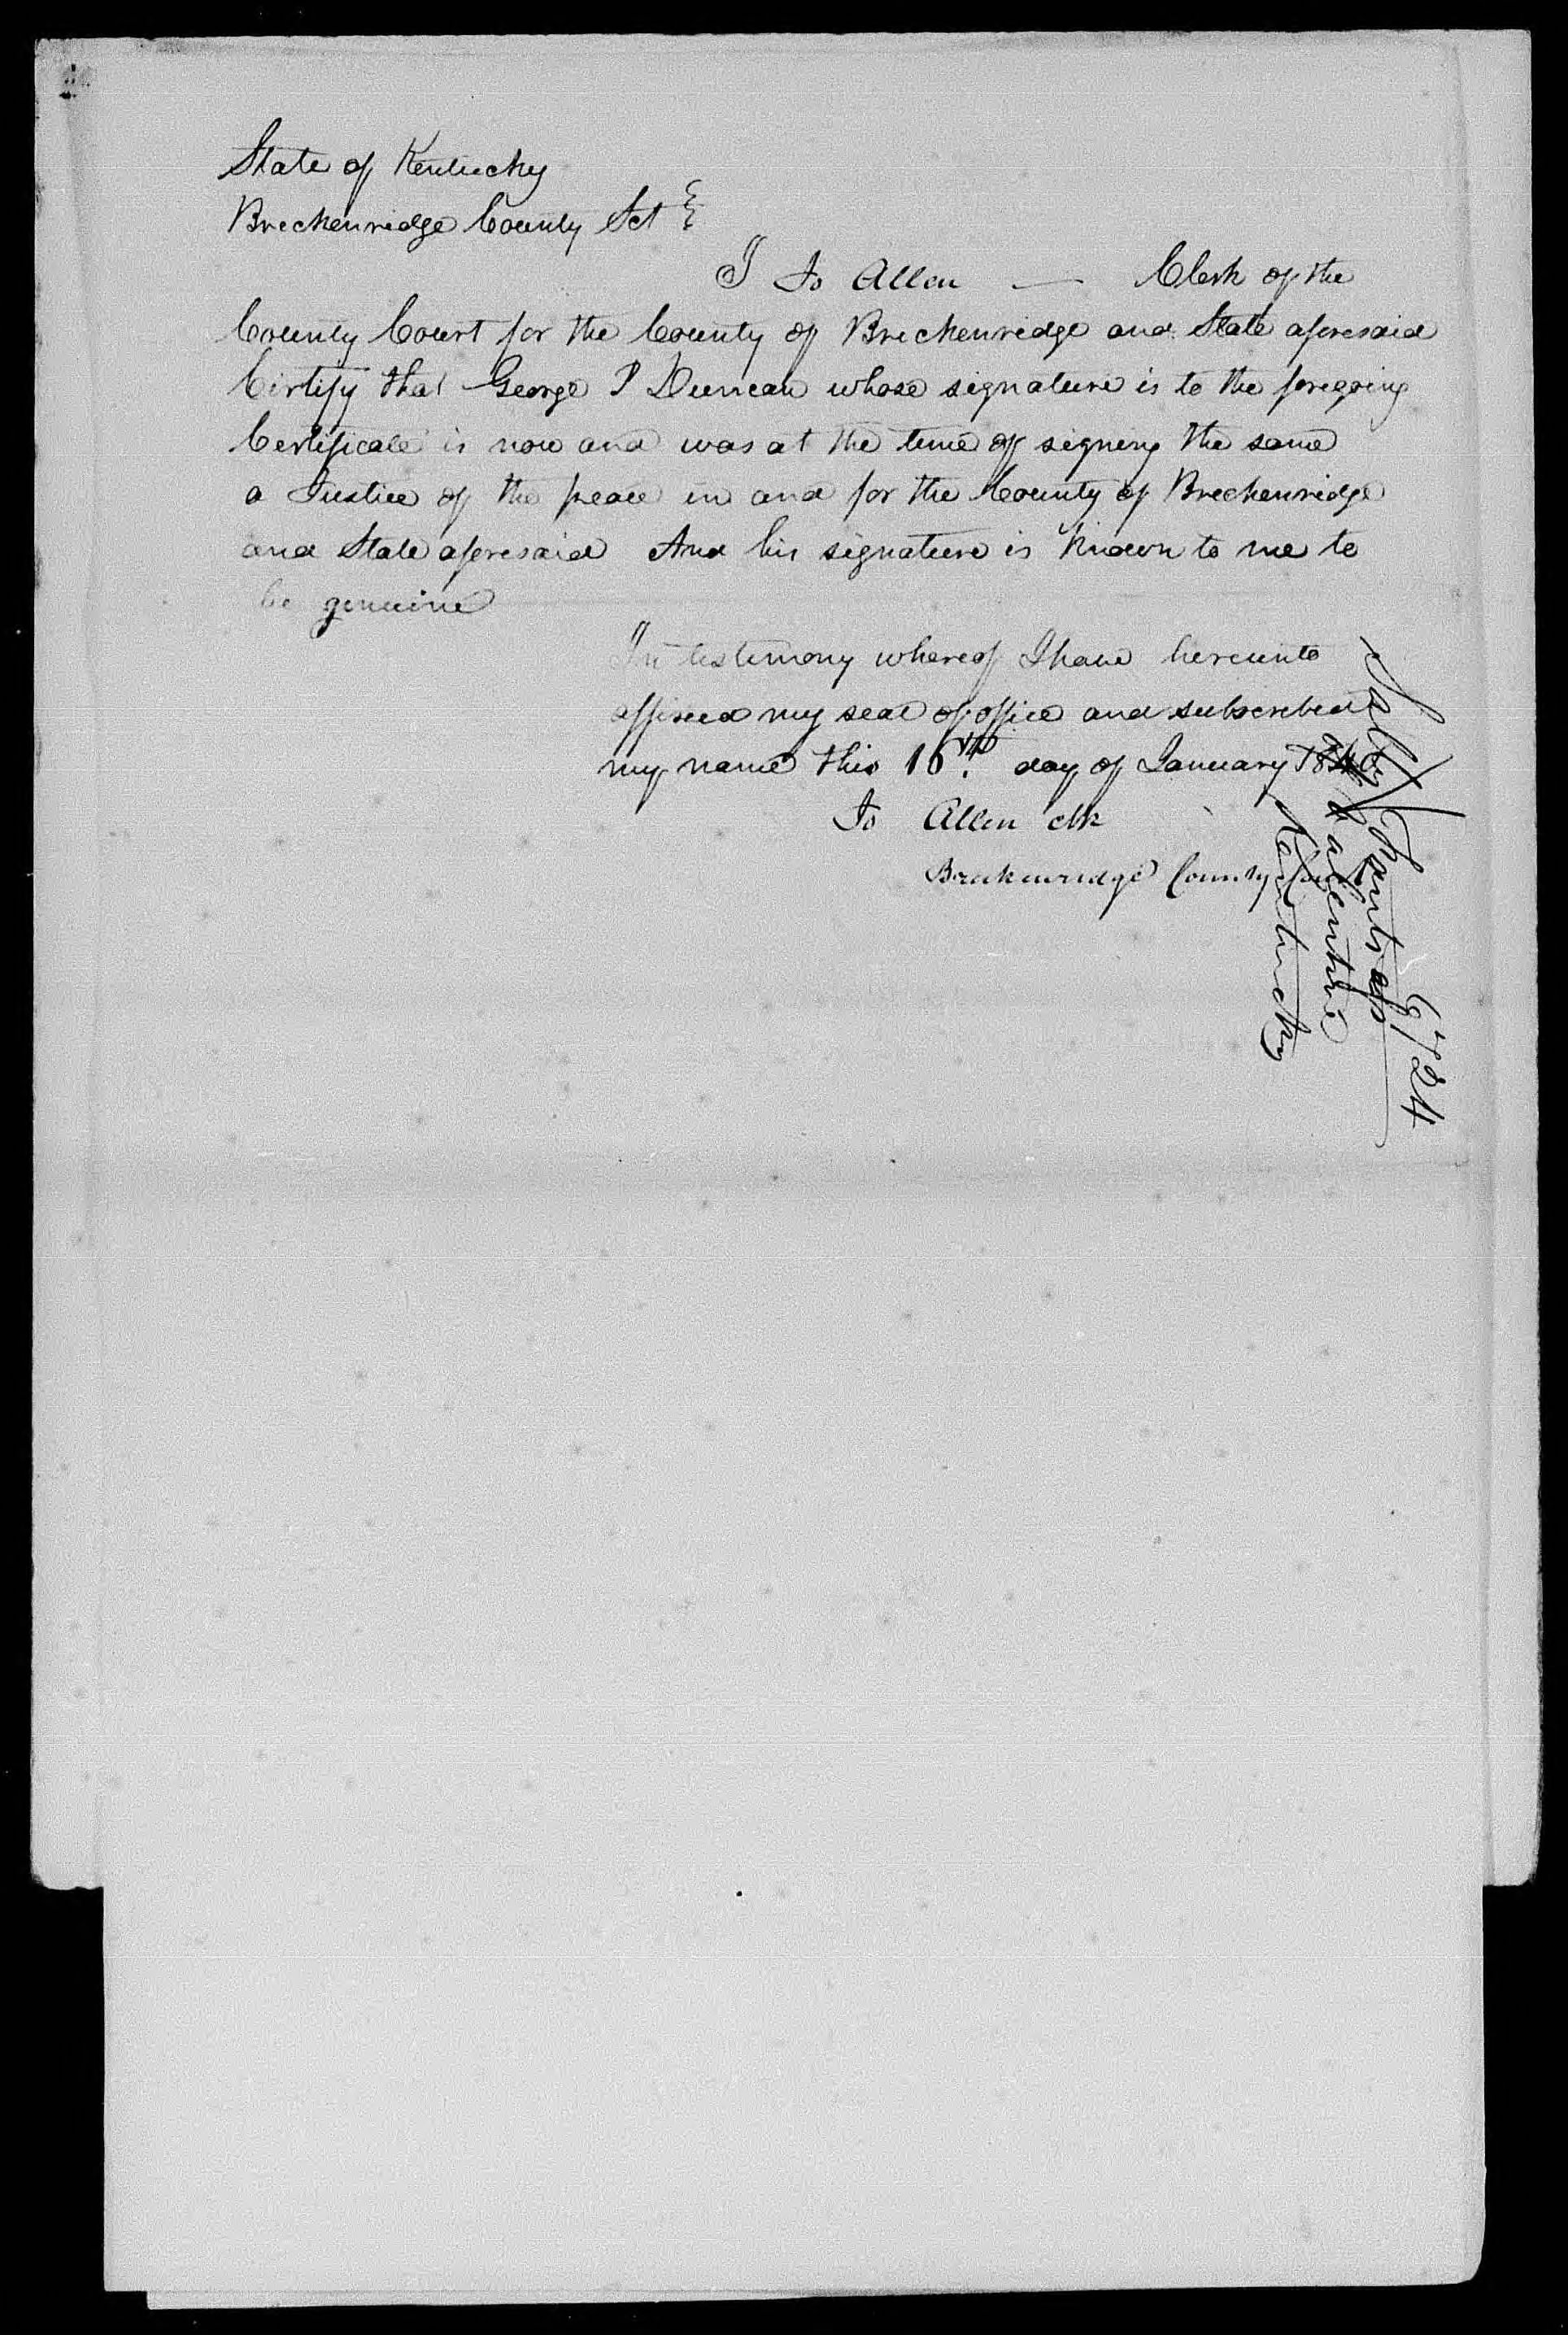 State of Kentucky
Breckenridge County Sct
I Jo Allen — Clerk of the
County Court for the County of Breckenridge and State aforesaid
Certify that George P Duncan whose signature is to the foregoing
Certificate is now and was at the time of signing the same
a Justice of the peace in and for the County of Breckenridge
and State aforesaid And his signature is known to me to
be genuine
In testimony whereof I have hereunto
affixed my seal of office and subscribed
my name this 16th day of January
Jo Allen clk
Breckenridge County
6724
Valentine
Kentucky